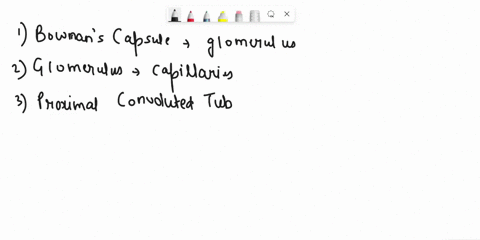 1) Bowman's Capsule → glomerulus
2) Glomerulus → capillaries
3) Proximal Convoluted Tub